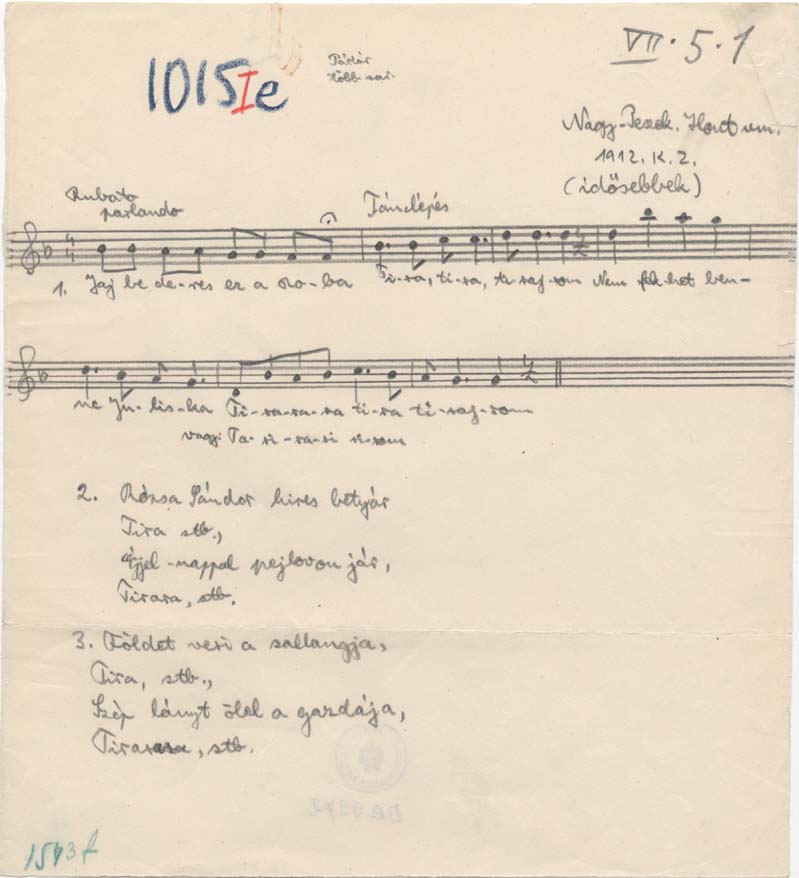 1015Ie
VII.5.1
Nagy-Peszek. Hont vm.
1912. K. Z.
(idősebbek)
Rubato
parlando
Tánclépés
1. Jaj be de-res ez a szo-ba Ti-ra, ti-ra, ti-raj-rom Nem fek-het ben-
ne Ju-lis-ka Ti-ra-ra-ra ti-ra ti-raj-rom
vagy: Ta-ri-ra-ri ri-rom
2. Rózsa Sándor hires betyár
Tira stb.,
Éjjel-nappal pejlovon jár,
Tirara, stb.
3. Földet veri a sallangja,
Tira, stb.,
Szép lányt ölel a gazdája,
Tirarara, stb.
1543f